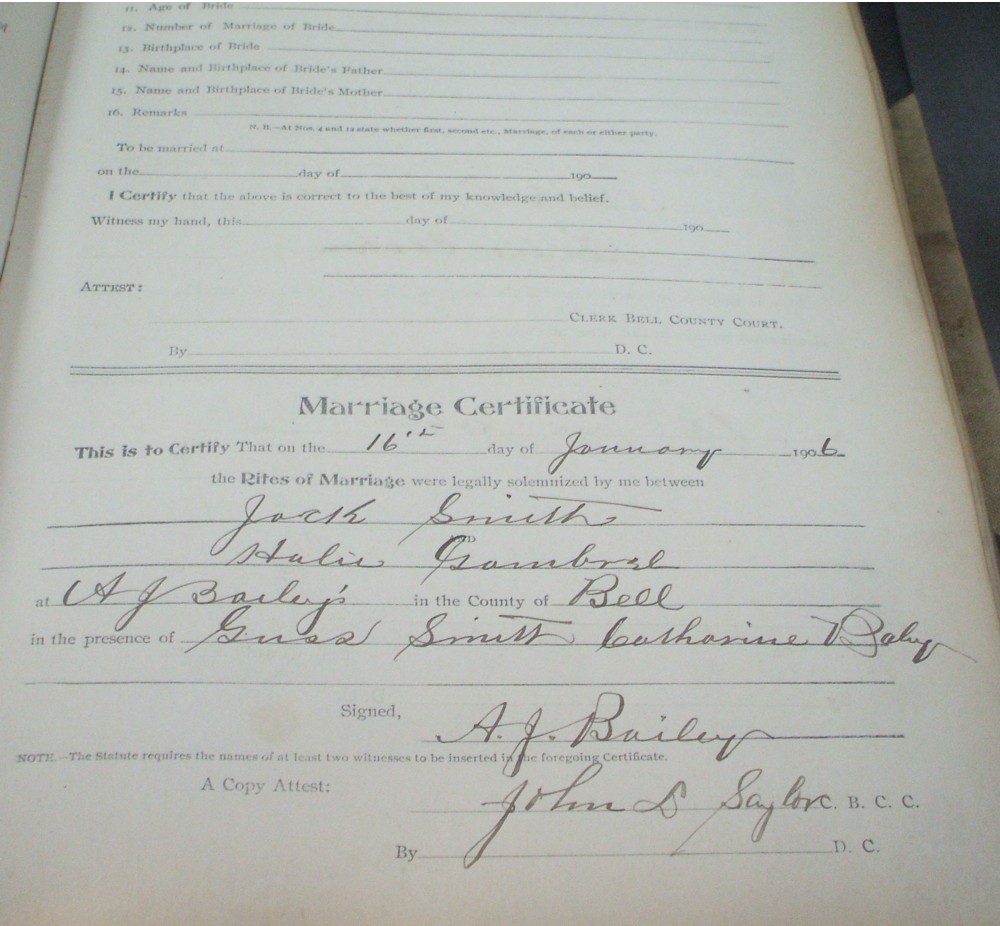 11. Age of Bride
12. Number of Marriage of Bride
13. Birthplace of Bride
14. Name and Birthplace of Bride's Father
15. Name and Birthplace of Bride's Mother
16. Remarks
N. B.—At Nos. 4 and 12 state whether first, second etc., Marriage, of each or either party.
To be married at
on the day of 190
I Certify that the above is correct to the best of my knowledge and belief.
Witness my hand, this day of 190
ATTEST:
CLERK BELL COUNTY COURT.
By D. C.
Marriage Certificate
This is to Certify That on the 16th day of January 1906
the Rites of Marriage were legally solemnized by me between
Jack Smith
AND
Halie Gambrel
at A J Bailey's in the County of Bell
in the presence of Guss Smith Catharine Baley
Signed, A. J. Bailey
NOTE.—The Statute requires the names of at least two witnesses to be inserted in the foregoing Certificate.
A Copy Attest:
John D Saylor C. B. C. C.
By D. C.